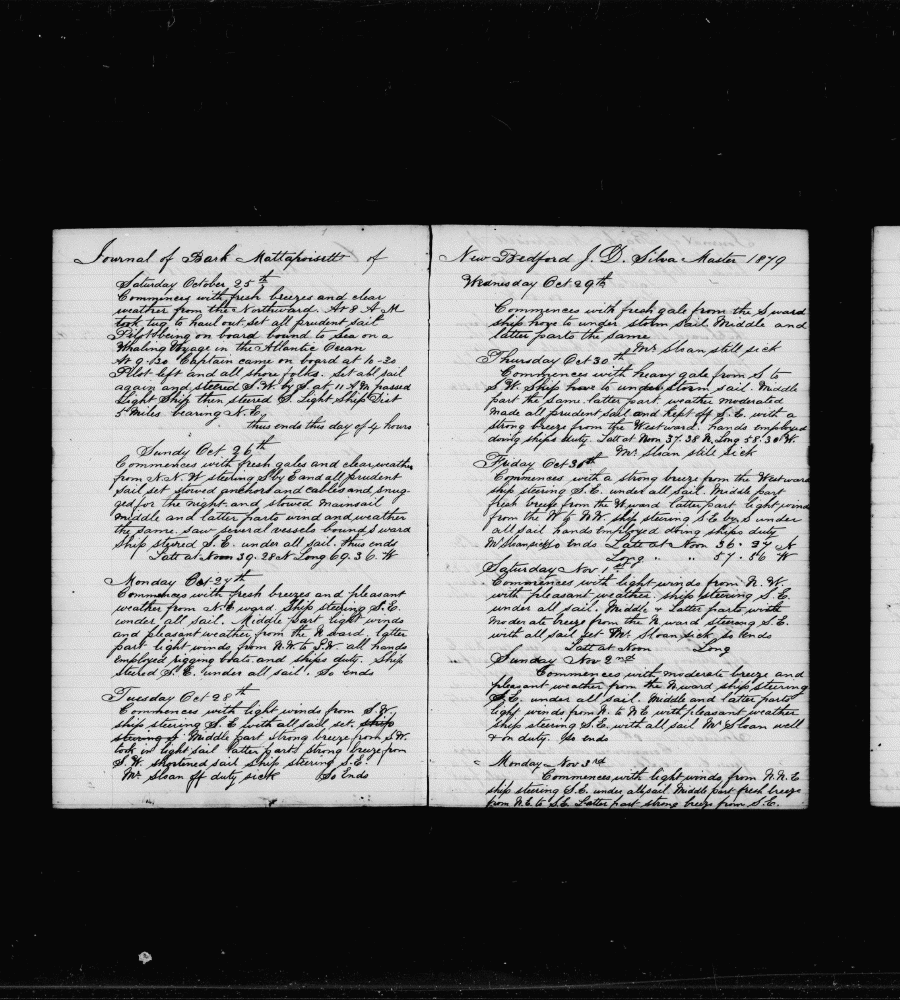 Journal of Bark Mattapoisett of
Saturday October 25th
Commences with fresh breezes and clear
weather from the Northward. At 8 A M
took tug to haul out set all prudent sail
Pilot being on board bound to sea on a
Whaling Voyage in the Atlantic Ocean
At 9.30 Captain came on board at 10-20
Pilot left and all shore folks. Set all sail
again and steered S.W. by S. at 11 A M passed
Light Ship then steered S. Light Ship Dist
5 Miles bearing N.E.
thus ends this day of 4 hours
Sundy Oct 26th
Commences with fresh gales and clear weather
from N.N.W steering S by E and all prudent
sail set stowed anchors and cables and snug-
ged for the night and stowed mainsail
middle and latter parts wind and weather
the same. saw several vessels bound S ward
Ship steered S.E. under all sail. thus ends
Latt at Noon 39.28 N Long 69.36. W
Monday Oct 27th
Commences with fresh breezes and pleasant
weather from N.E ward. Ship steering S.E.
under all sail. Middle part light winds
and pleasant weather from the N ward. latter
part light winds from N.W. to S.W. all hands
employed rigging boats and ships duty. Ship
steered S.E. under all sail. So ends
Tuesday Oct 28th
Commences with light winds from S.W.
ship steering S.E with all sail set. ship
steering S Middle part strong breeze from S.W.
took in light sail latter part strong breeze from
S.W. shortened sail ship steering S.E.
Mr Sloan off duty sick So Ends
New Bedford J. D. Silva Master 1879
Wednesday Oct 29th
Commences with fresh gale from the S ward
ship hove to under storm sail Middle and
latter parts the same
Mr Sloan still sick
Thursday Oct 30th
Commences with heavy gale from S to
S.W. Ship hove to under storm sail. Middle
part the same. latter part weather moderated
Made all prudent sail and kept off S.E. with a
strong breeze from the Westward. hands employed
doing ships duty. Latt at Noon 37.38 N. Long 58.30 W.
Mr Sloan still sick
Friday Oct 31th
Commences with a strong breeze from the Westward
ship steering S.E. under all sail. Middle part
fresh breeze from the W.ward latter part light wind
from the W & N.W. ship steering S.E by S under
all sail hands employed doing ships duty
Mr Sloan sick so ends Latt at Noon 36.27 N
Long " " 57.56 W
Saturday Nov 1st
Commences with light winds from N.W.
with pleasant weather. ship steering S.E.
under all sail. Middle & latter parts with
moderate breeze from the N ward steering S.E.
with all sail set Mr Sloan sick so ends
Latt at Noon Long
Sunday Nov 2nd
Commences with moderate breeze and
pleasant weather from the N ward ship steering
S.E. under all sail. Middle and latter parts
light winds from N. to N E with pleasant weather
ship steering S.E. with all sail Mr Sloan well
& on duty. So ends
Monday Nov 3rd
Commences with light winds from N.N.E
ship steering S.E. under all sail Middle part fresh breeze
from N.E to S.E. Latter part strong breeze from S.E.